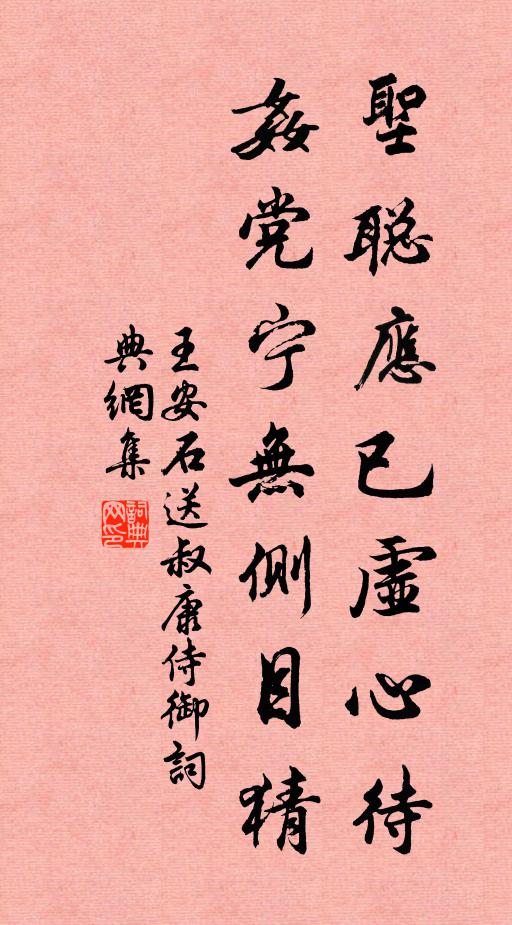 聖聪應已虛心待
姦党宁無側目猜
王安石送叔康侍御詞
典網集
詞典網印